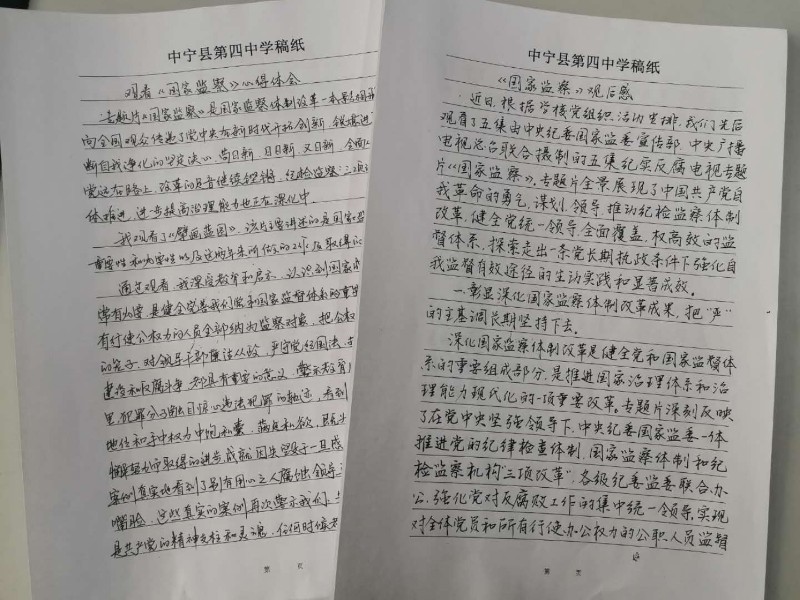 中宁县第四中学稿纸
观看《国家监察》心得体会
专题片《国家监察》是国家监察体制改革一
向全国观众传递了党中央在新时代开拓创新、
断自我净化的坚定决心。苟日新、日日新、又日新、全面
党永在路上，改革的
体推进，进一步提高治理能力也正在深化中。
我观看了《擘画蓝图》，该片主要讲述的是国家
重要性和必要性以及这两年来所做的工作及取得
通过观看，我深受教育和启示，认识到国家
常有力量，是健全完善我们党和国家监督体系的重要
有行使公权力的人员全部纳为监察对象，把公权
的笼子。对领导干部廉洁从政，严守党纪国法，
建设和反腐斗争，都具有重要的意义。警示教育
里犯罪分子触目惊心违法犯罪的轨迹，看到
地位和手中权力中饱私囊，
取得的进步成就因失
案例真实地看到了别有用心之人腐蚀领导
嘴脸，这些真实的案例再次警示我们，
是共产党的精神支柱和灵魂，任何时候
第 页
中宁县第四中学稿纸
《国家监察》观后感
近日，根据学校党组织活动安排，我们先后
观看了五集由中央纪委国家监委宣传部、中央广播
电视总台联合摄制的五集纪实反腐电视专题
片《国家监察》，专题片全景展现了中国共产党自
我革命的勇气，谋划、领导、推动纪检监察体制
改革，健全党统一领导、全面覆盖、权高效的监
督体系，探索走出一条党长期执政条件下强化自
我监督有效途径的生动实践和显著成效。
一.彰显深化国家监察体制改革成果，把“严”
的主基调长期坚持下去。
深化国家监察体制改革是健全党和国家监督体
系的重要组成部分，是推进国家治理体系和治
理能力现代化的一项重要改革。专题片深刻反映
了在党中央坚强领导下，中央纪委国家监委一体
推进党的纪律检查体制、国家监察体制和纪
检监察机构“三项改革”，各级纪委监委联合办
公，强化党对反腐败工作的集中统一领导，实现
对全体党员和所有行使办公权力的公职人员监督
第 页